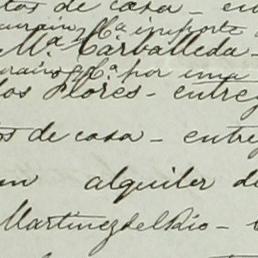 tos de casa - en
Cª importe
Mª Carballeda -
Cª por una
los Flores - entreg
os de casa - entre
en alquiler de
Martinez del Rio -